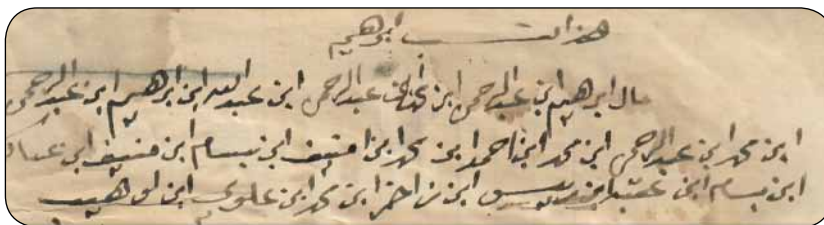 هذا نسب ابرهيم
قال ابرهيم ابن عبد الرحمن ابن محمد ابن عبد الرحمن ابن عبد الله ابن ابرهيم ابن عبد الرحمن
ابن محمد ابن عبد الرحمن ابن محمد ابن احمد ابن محمد ابن منيف ابن بسام ابن منيف ابن عساكر
ابن بسام ابن عقبه ابن ريس ابن زاخر ابن محمد ابن علوي ابن اوهيب